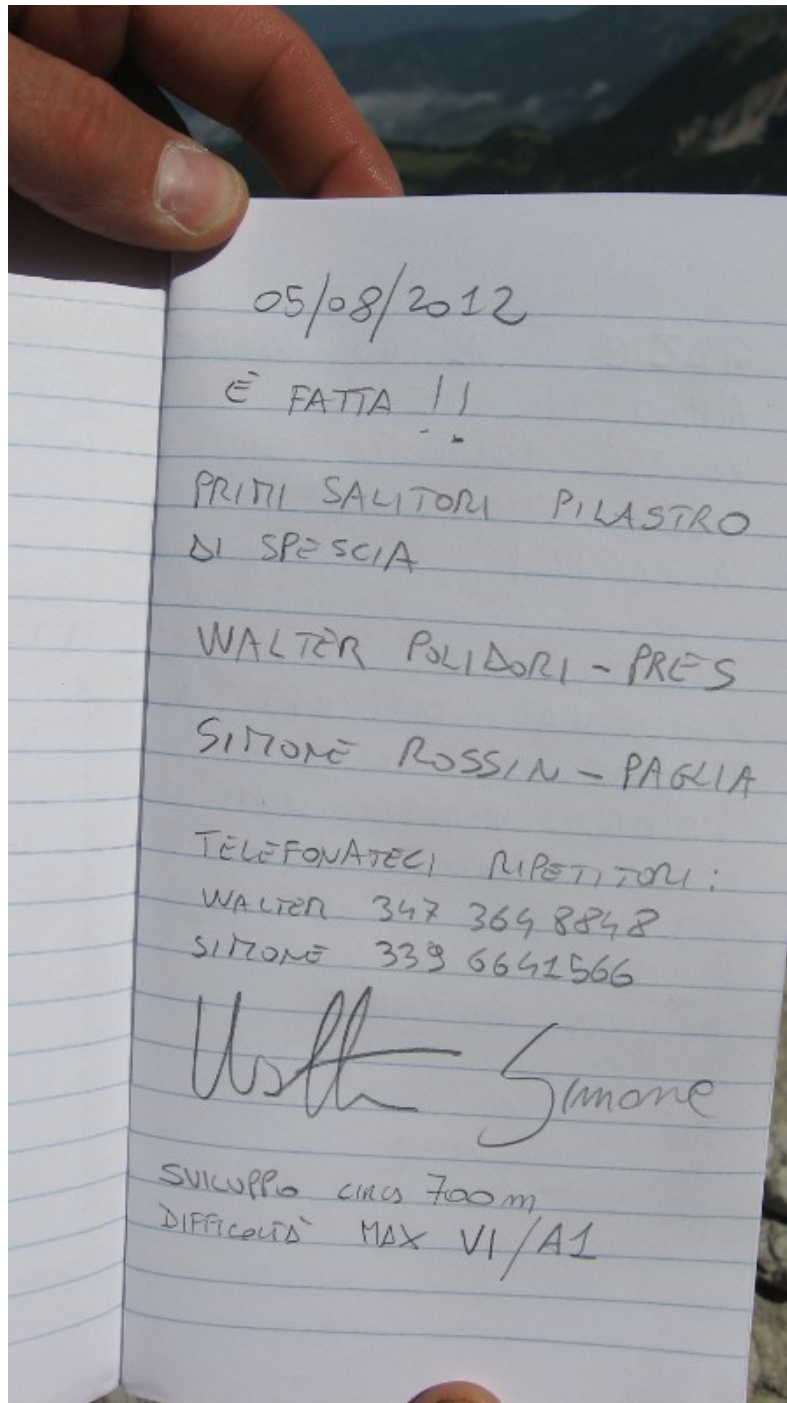 05/08/2012
È FATTA !!
PRIMI SALITORI PILASTRO
DI SPESCIA
WALTER POLIDORI - PRES
SIMONE ROSSIN - PAGLIA
TELEFONATECI RIPETITORI:
WALTER 347 3648848
SIMONE 339 6641566
Walter Simone
SVILUPPO CIRCA 700m
DIFFICOLTÀ MAX VI/A1